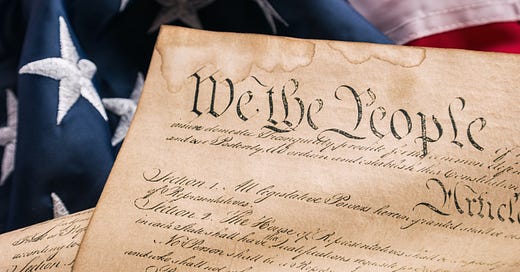 We the People
insure domestic Tranquility, provide for the common
and our Posterity, do ordain and establish this Constitution
Article
Section 1. All legislative Powers herein granted shall be
of Representatives.
Section 2. The House of Representatives shall be
in each State shall have the Qualifications requisite
No Person shall be a
and who shall not
Section